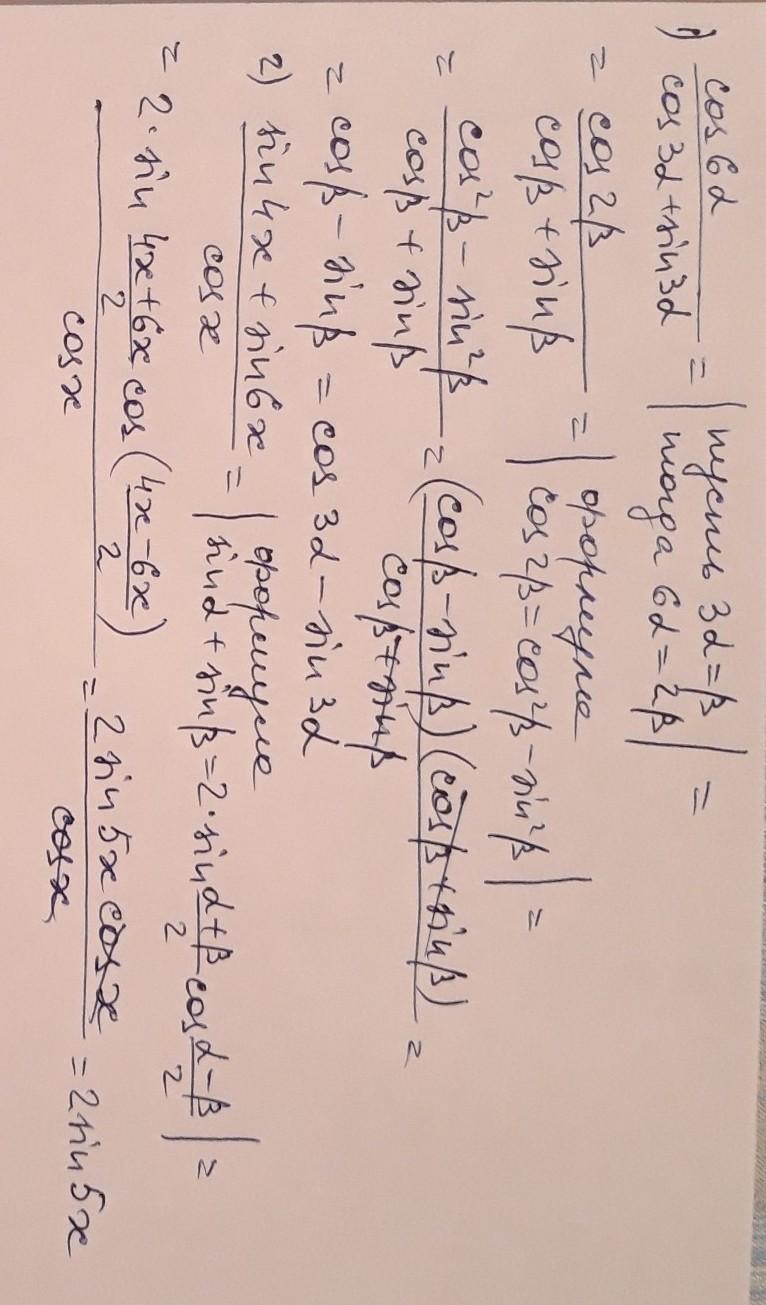 1) cos6α / (cos3α+sin3α) = | пусть 3α=β тогда 6α=2β | =
= cos2β / (cosβ+sinβ) = | формула cos2β=cos²β-sin²β | =
= (cos²β-sin²β) / (cosβ+sinβ) = (cosβ-sinβ)(cosβ+sinβ) / (cosβ+sinβ) =
= cosβ-sinβ = cos3α-sin3α
2) (sin4x+sin6x) / cosx = | формула sinα+sinβ=2·sin (α+β)/2 cos (α-β)/2 | =
= 2·sin (4x+6x)/2 cos((4x-6x)/2) / cosx = 2sin5x cosx / cosx = 2sin5x